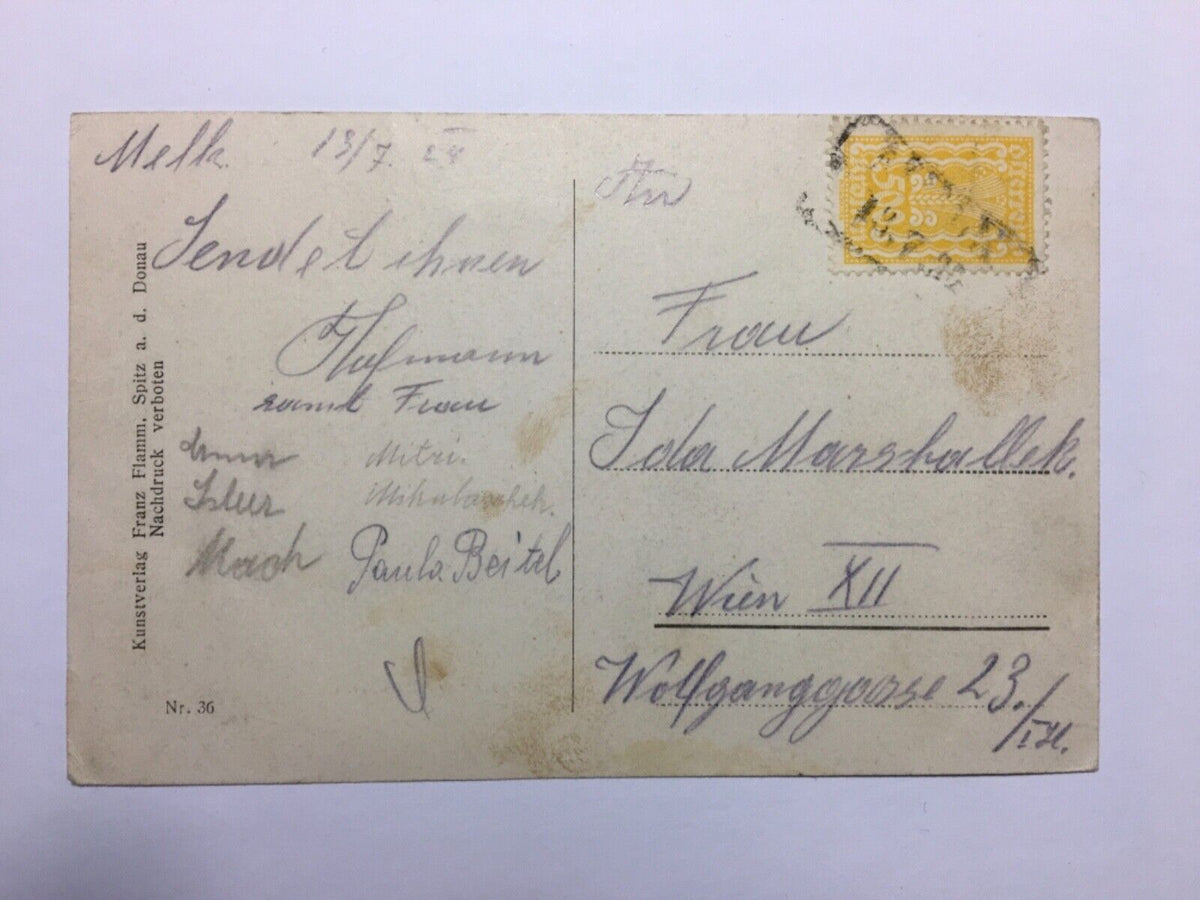 Melk 13/7. 24
Sendet ihnen
Hofmann
samt Frau
Mitzi.
Mach Paula Beitzl
Kunstverlag Franz Flamm, Spitz a. d. Donau
Nachdruck verboten
Nr. 36
500
Frau
Ida Marshallek.
Wien XII
Wolfganggasse 23.